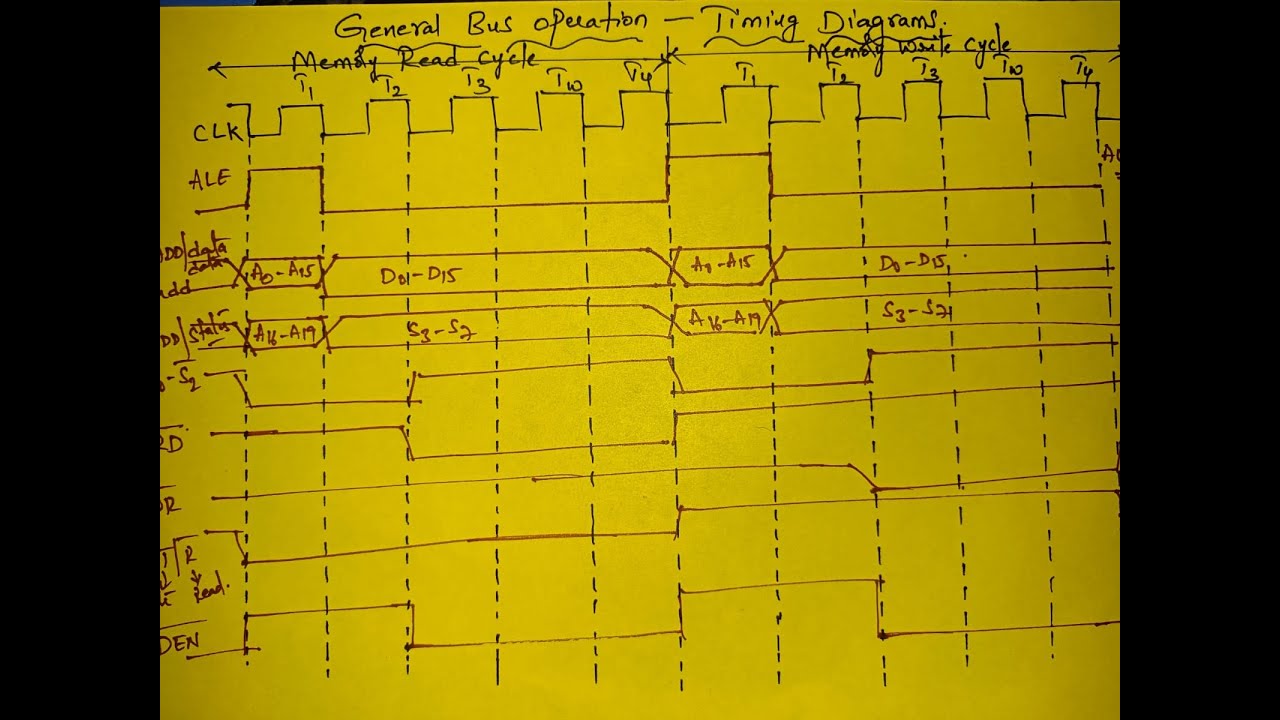 General Bus operation – Timing Diagrams.
Memory Read Cycle Memory Write Cycle
T1 T2 T3 Tw T4 T1 T2 T3 Tw T4
CLK
ALE
DD/data A0-A15 D0-D15 A0-A15 D0-D15
data
add
DD/Status A16-A19 S3-S7 A16-A19 S3-S7
-S2
RD
R
/R
Read.
DEN